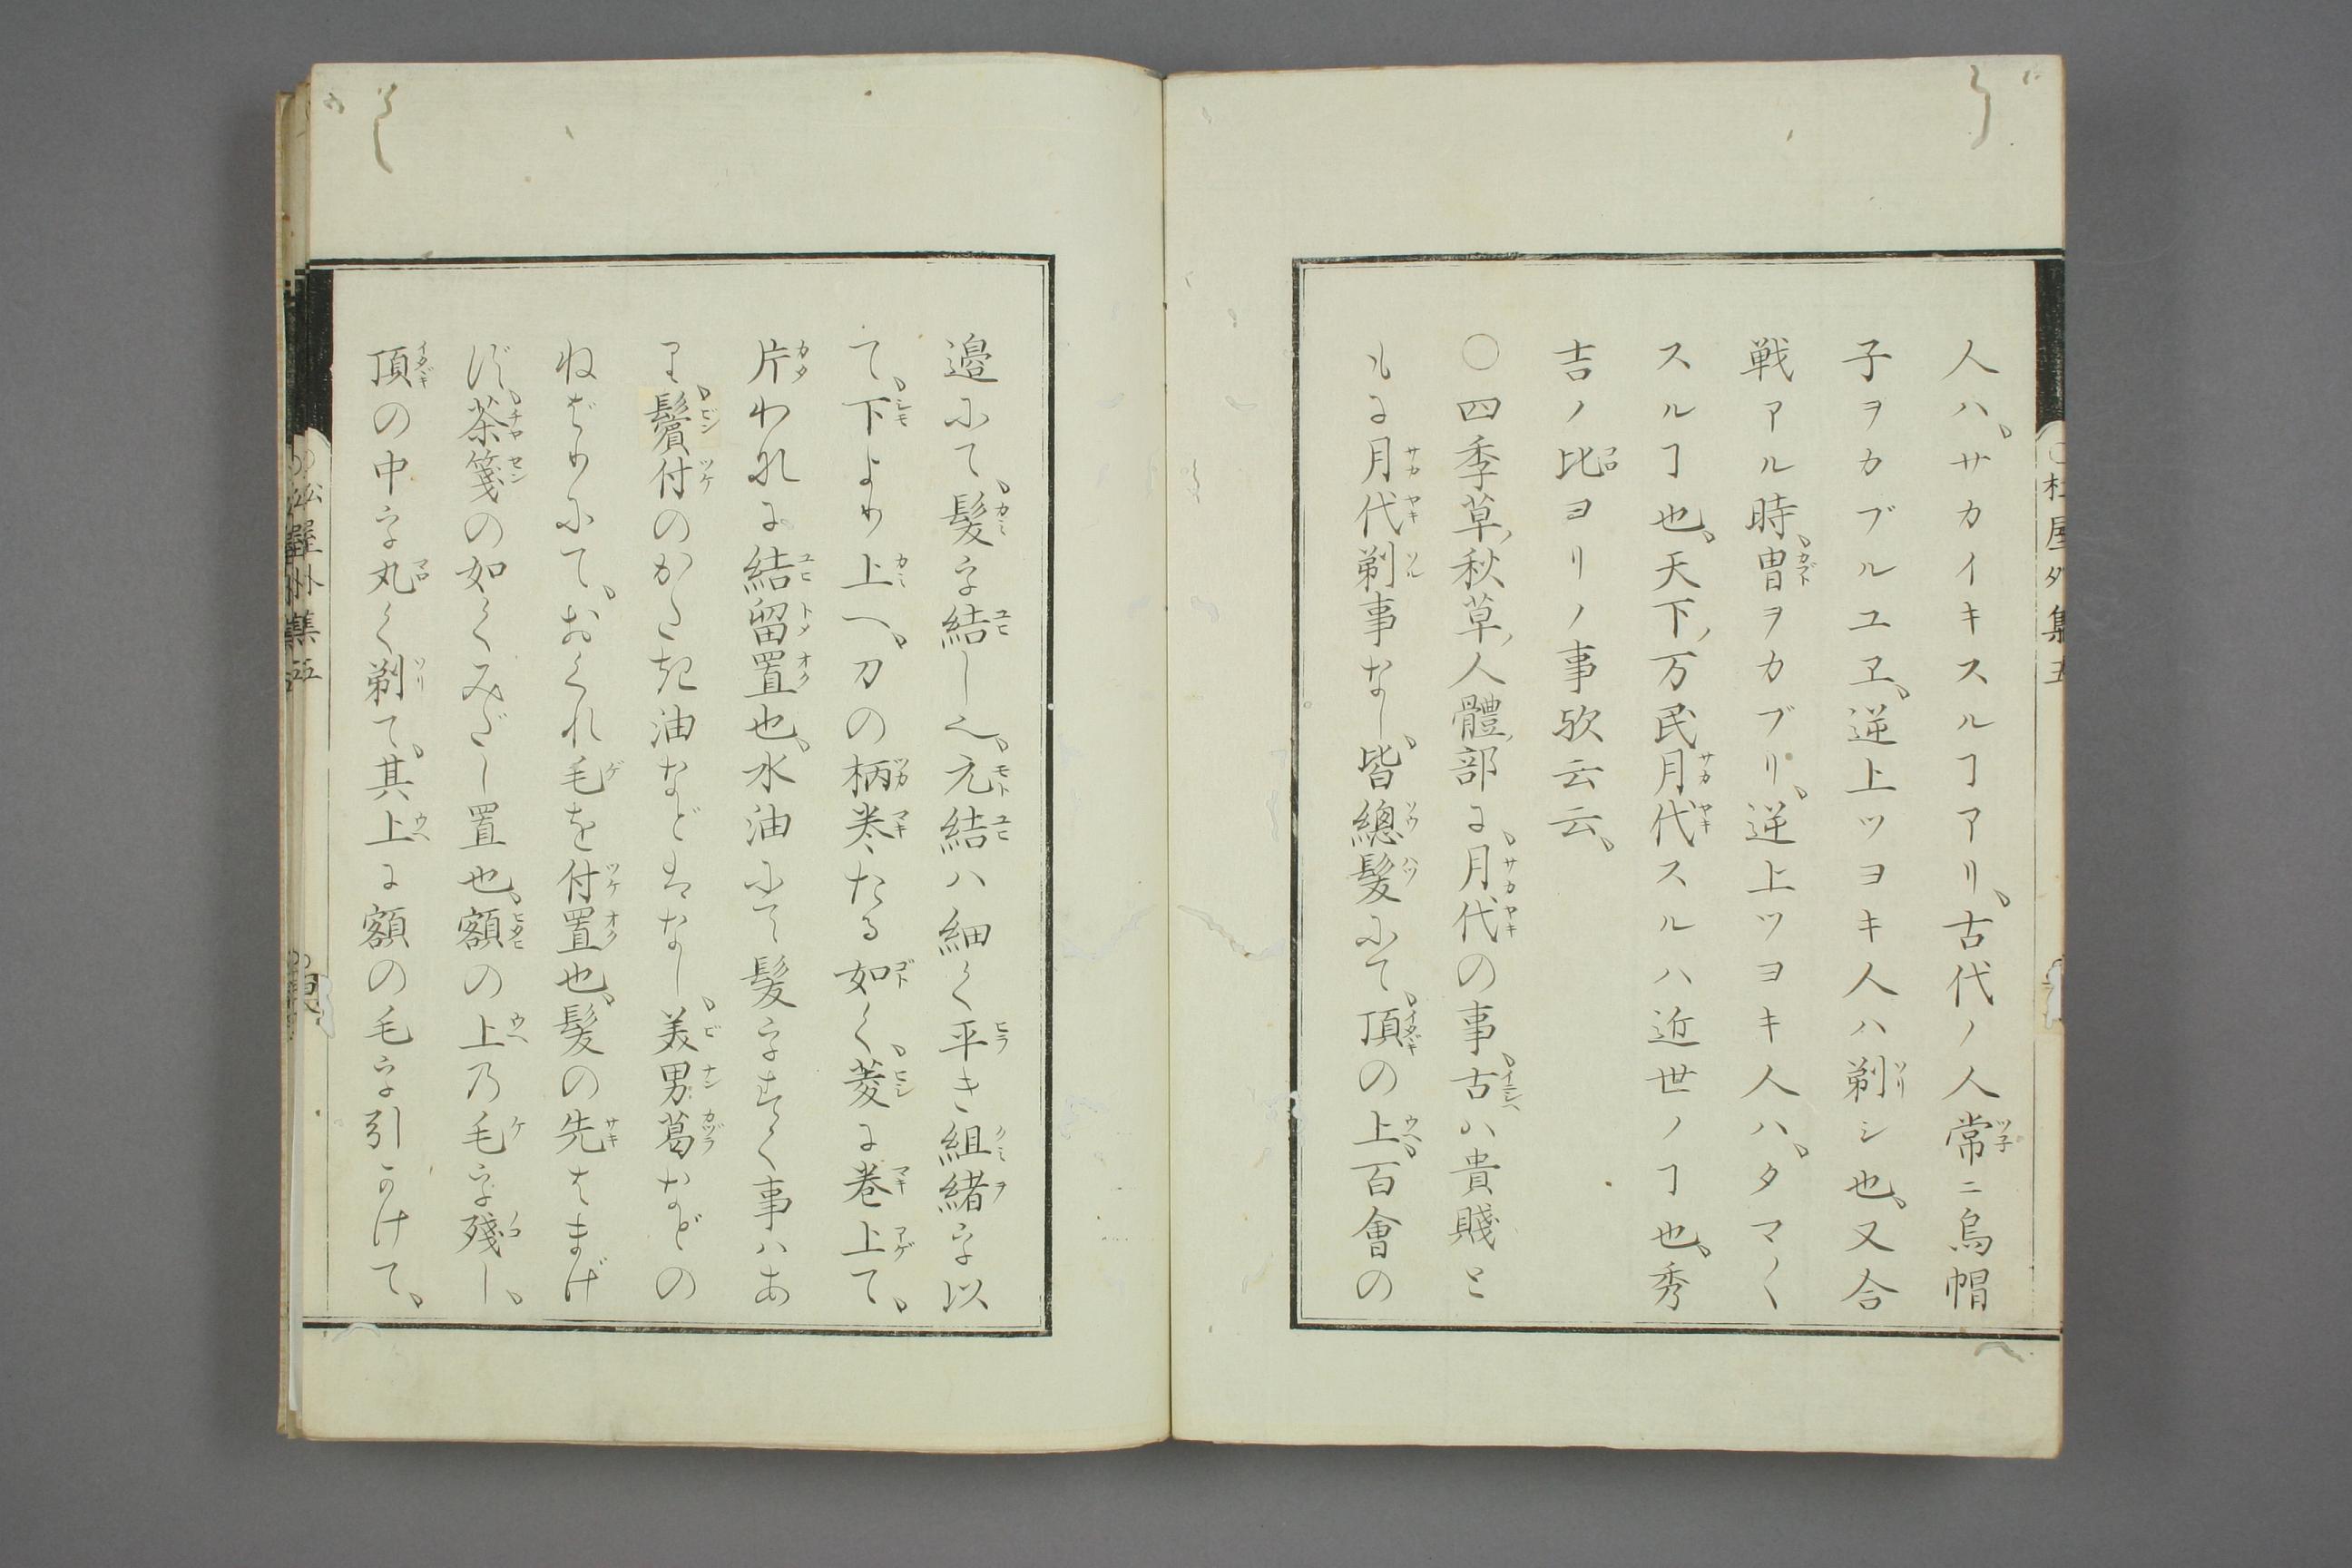 人ハ、サカイキスルヿアリ、古代ノ人常ニ烏帽
子ヲカブルユヱ、逆上ツヨキ人ハ剃シ也、又合
戦アル時、冑ヲカブリ、逆上ツヨキ人ハ、タマ〱
スルヿ也、天下ノ万民月代スルハ近世ノヿ也、秀
吉ノ比ヨリノ事欤云云、
○四季草ノ秋草ノ人體ノ部に、月代の事、古ハ貴賤と
もに月代剃事なし、皆總髮にて、頂の上、百會の
邊にて、髮を結し也、元結ハ細く平き組緒を以
て、下より上へ、刀の柄巻たる如く、菱に巻上て、
片われに結留置也、水油にて髮をすく事ハあ
り、鬢付のかたき油などはなし、美男葛などの
ねばりにて、おくれ毛を付置也、髮の先はまげ
ず、茶筅の如くみだし置也、額の上乃毛を殘し、
頂の中を丸く剃て、其上に額の毛を引かけて、
松屋外集五